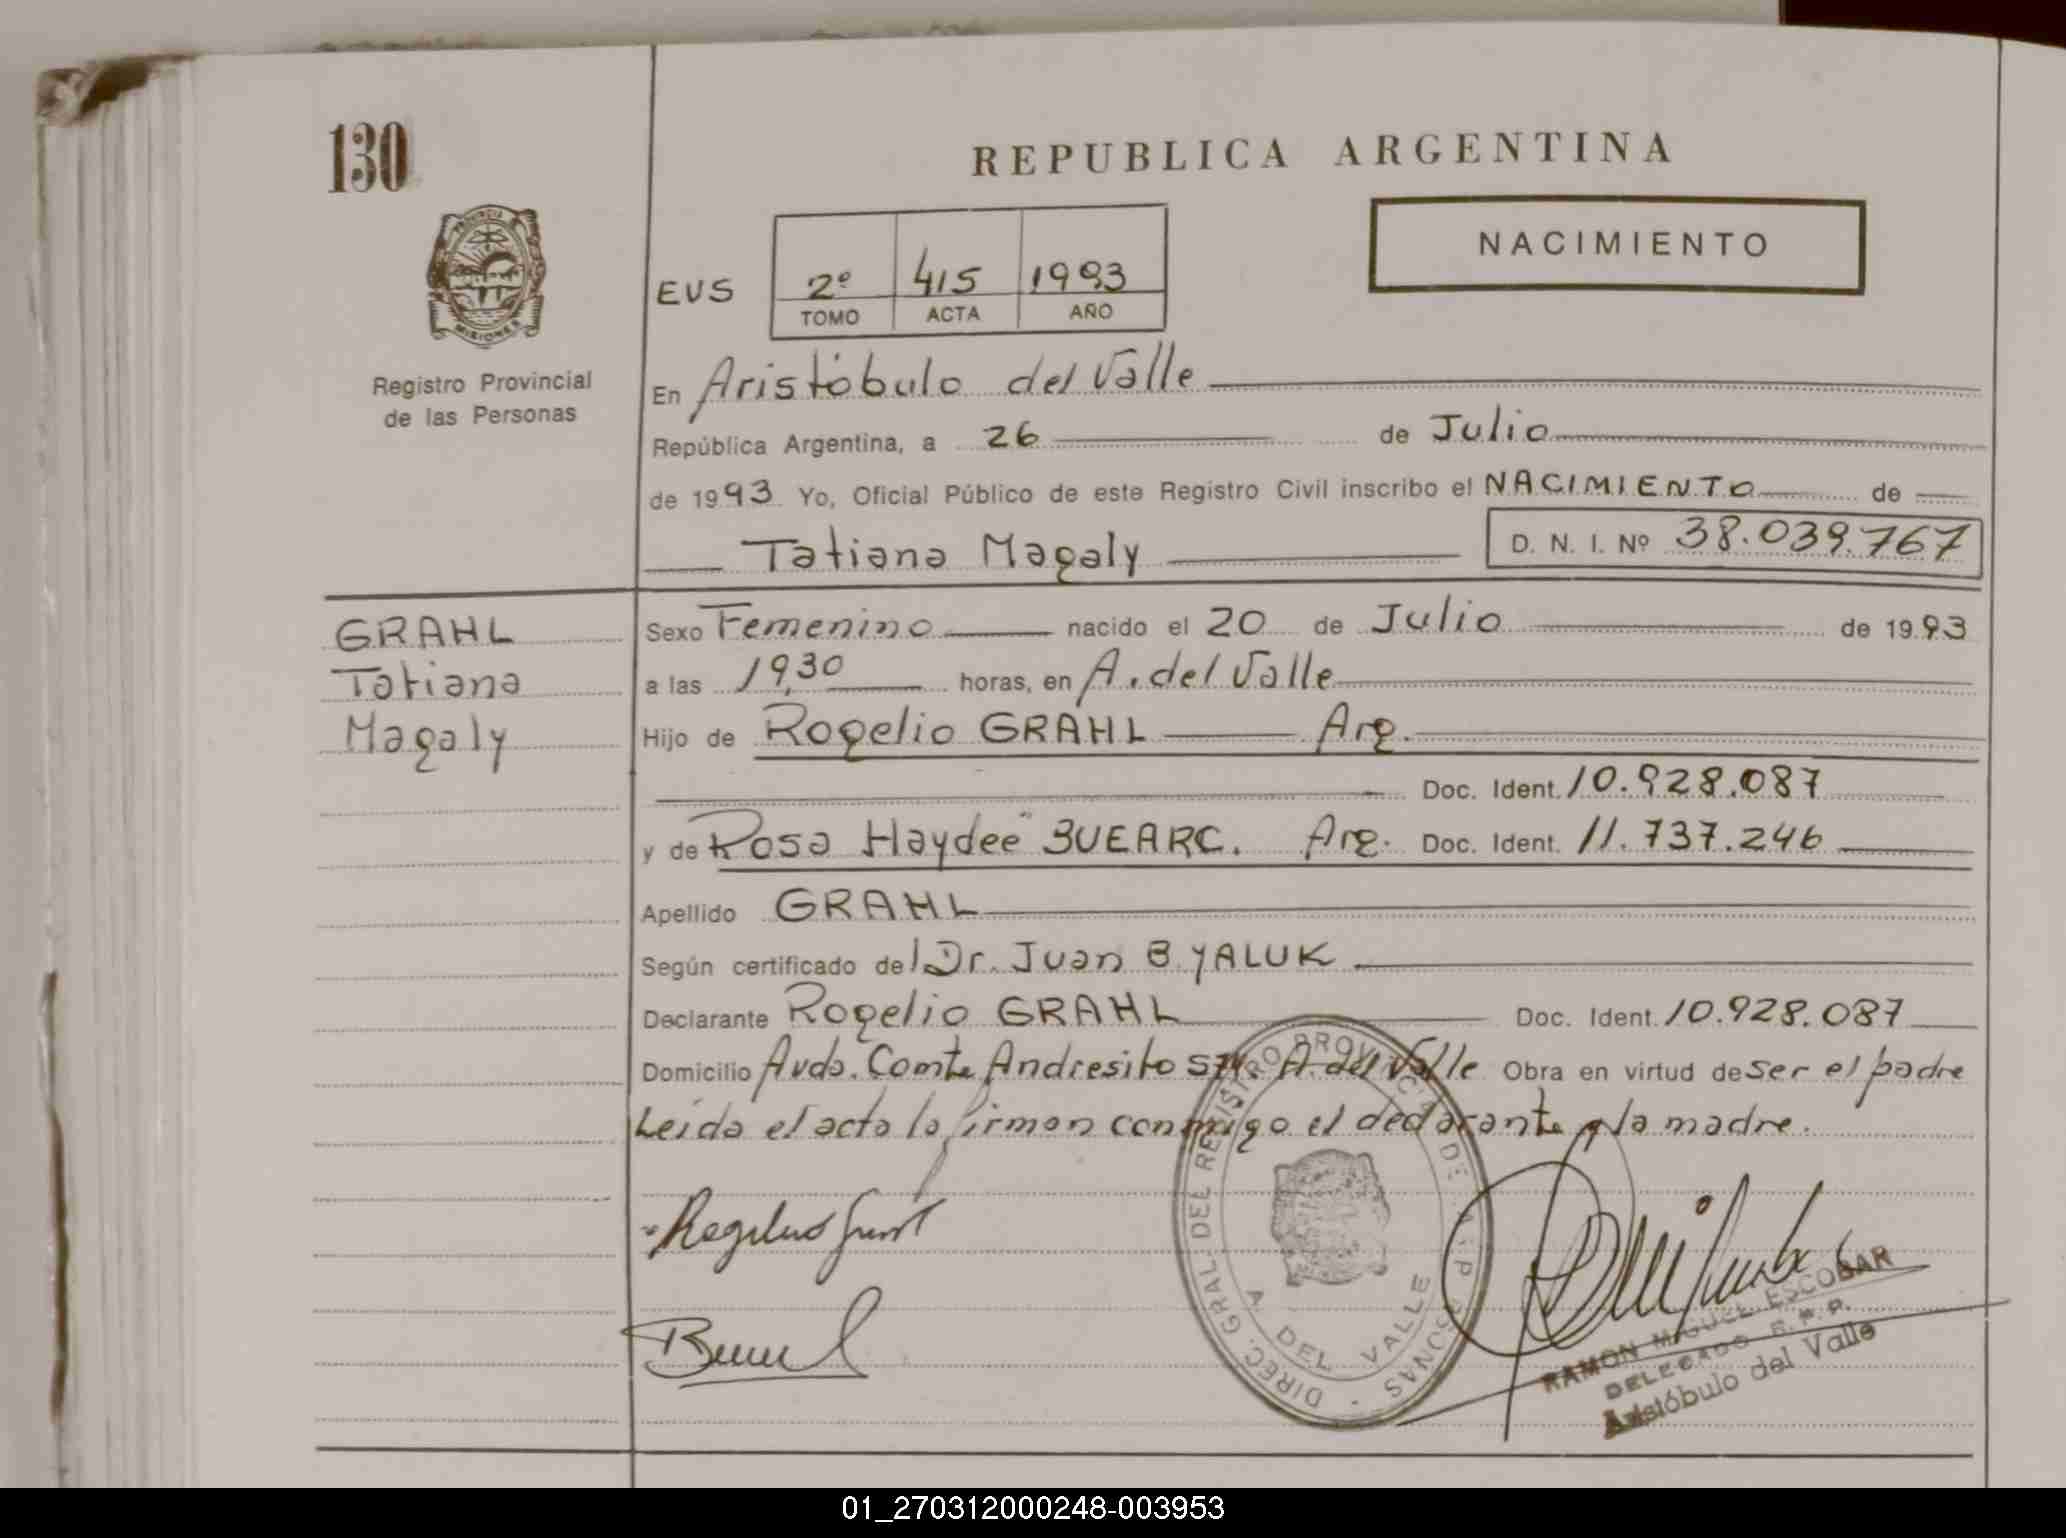 130
REPUBLICA ARGENTINA
NACIMIENTO
PROVINCIA
MISIONES
Registro Provincial
de las Personas
EVS
2º 415 1993
TOMO ACTA AÑO
En Aristóbulo del Valle
República Argentina, a 26 de Julio
de 1993 Yo, Oficial Público de este Registro Civil inscribo el NACIMIENTO de
Tatiana Magaly D. N. I. Nº 38.039.767
GRAHL
Tatiana
Magaly
Sexo Femenino nacido el 20 de Julio de 1993
a las 19,30 horas, en A. del Valle
Hijo de Rogelio GRAHL Arg.
Doc. Ident. 10.928.087
y de Rosa Haydeé BUEARC. Arg. Doc. Ident. 11.737.246
Apellido GRAHL
Según certificado del Dr. Juan B. YALUK
Declarante Rogelio GRAHL Doc. Ident. 10.928.087
Domicilio Avda. Comte Andresito S/N. A. del Valle Obra en virtud de ser el padre
Leida el acta la firman conmigo el declarante y la madre.
DIREC. GRAL. DEL REGISTRO PROVINCIAL DE LAS PERSONAS
A. DEL VALLE
RAMON MIGUEL ESCOBAR
DELEGADO R.P.P.
Aristóbulo del Valle
01_270312000248-003953